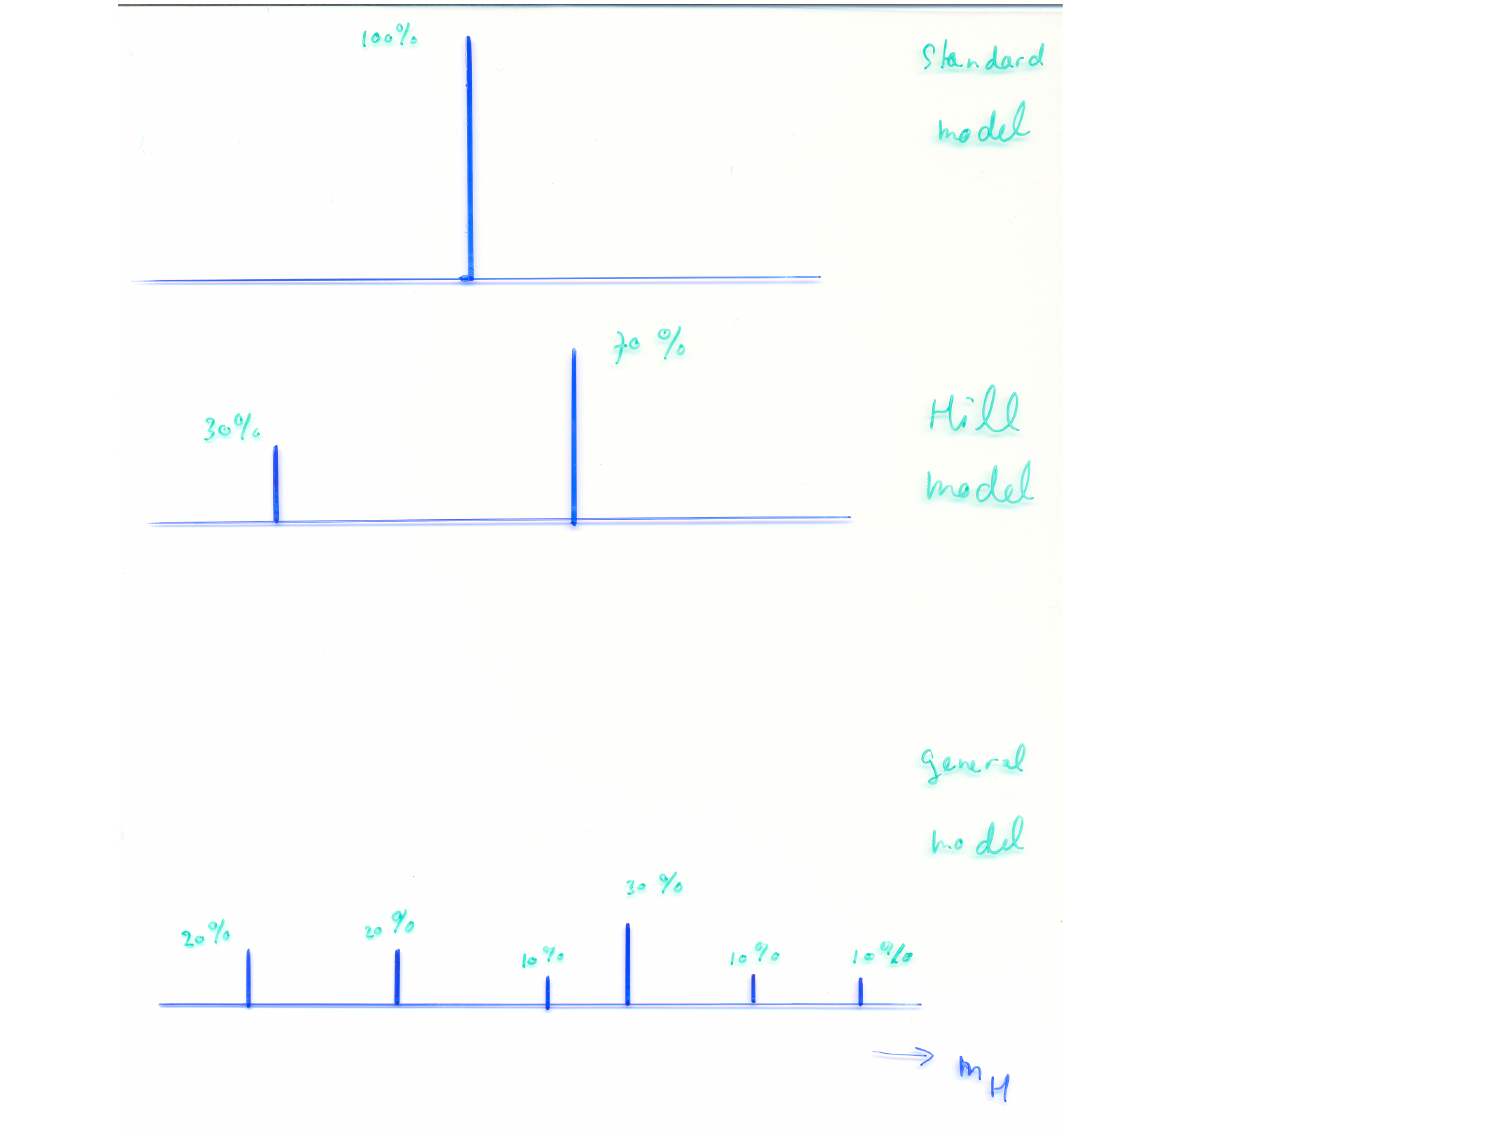 100%
Standard
model
70 %
30%
Hill
model
general
model
30 %
20%
20%
10%
10%
10%
m H